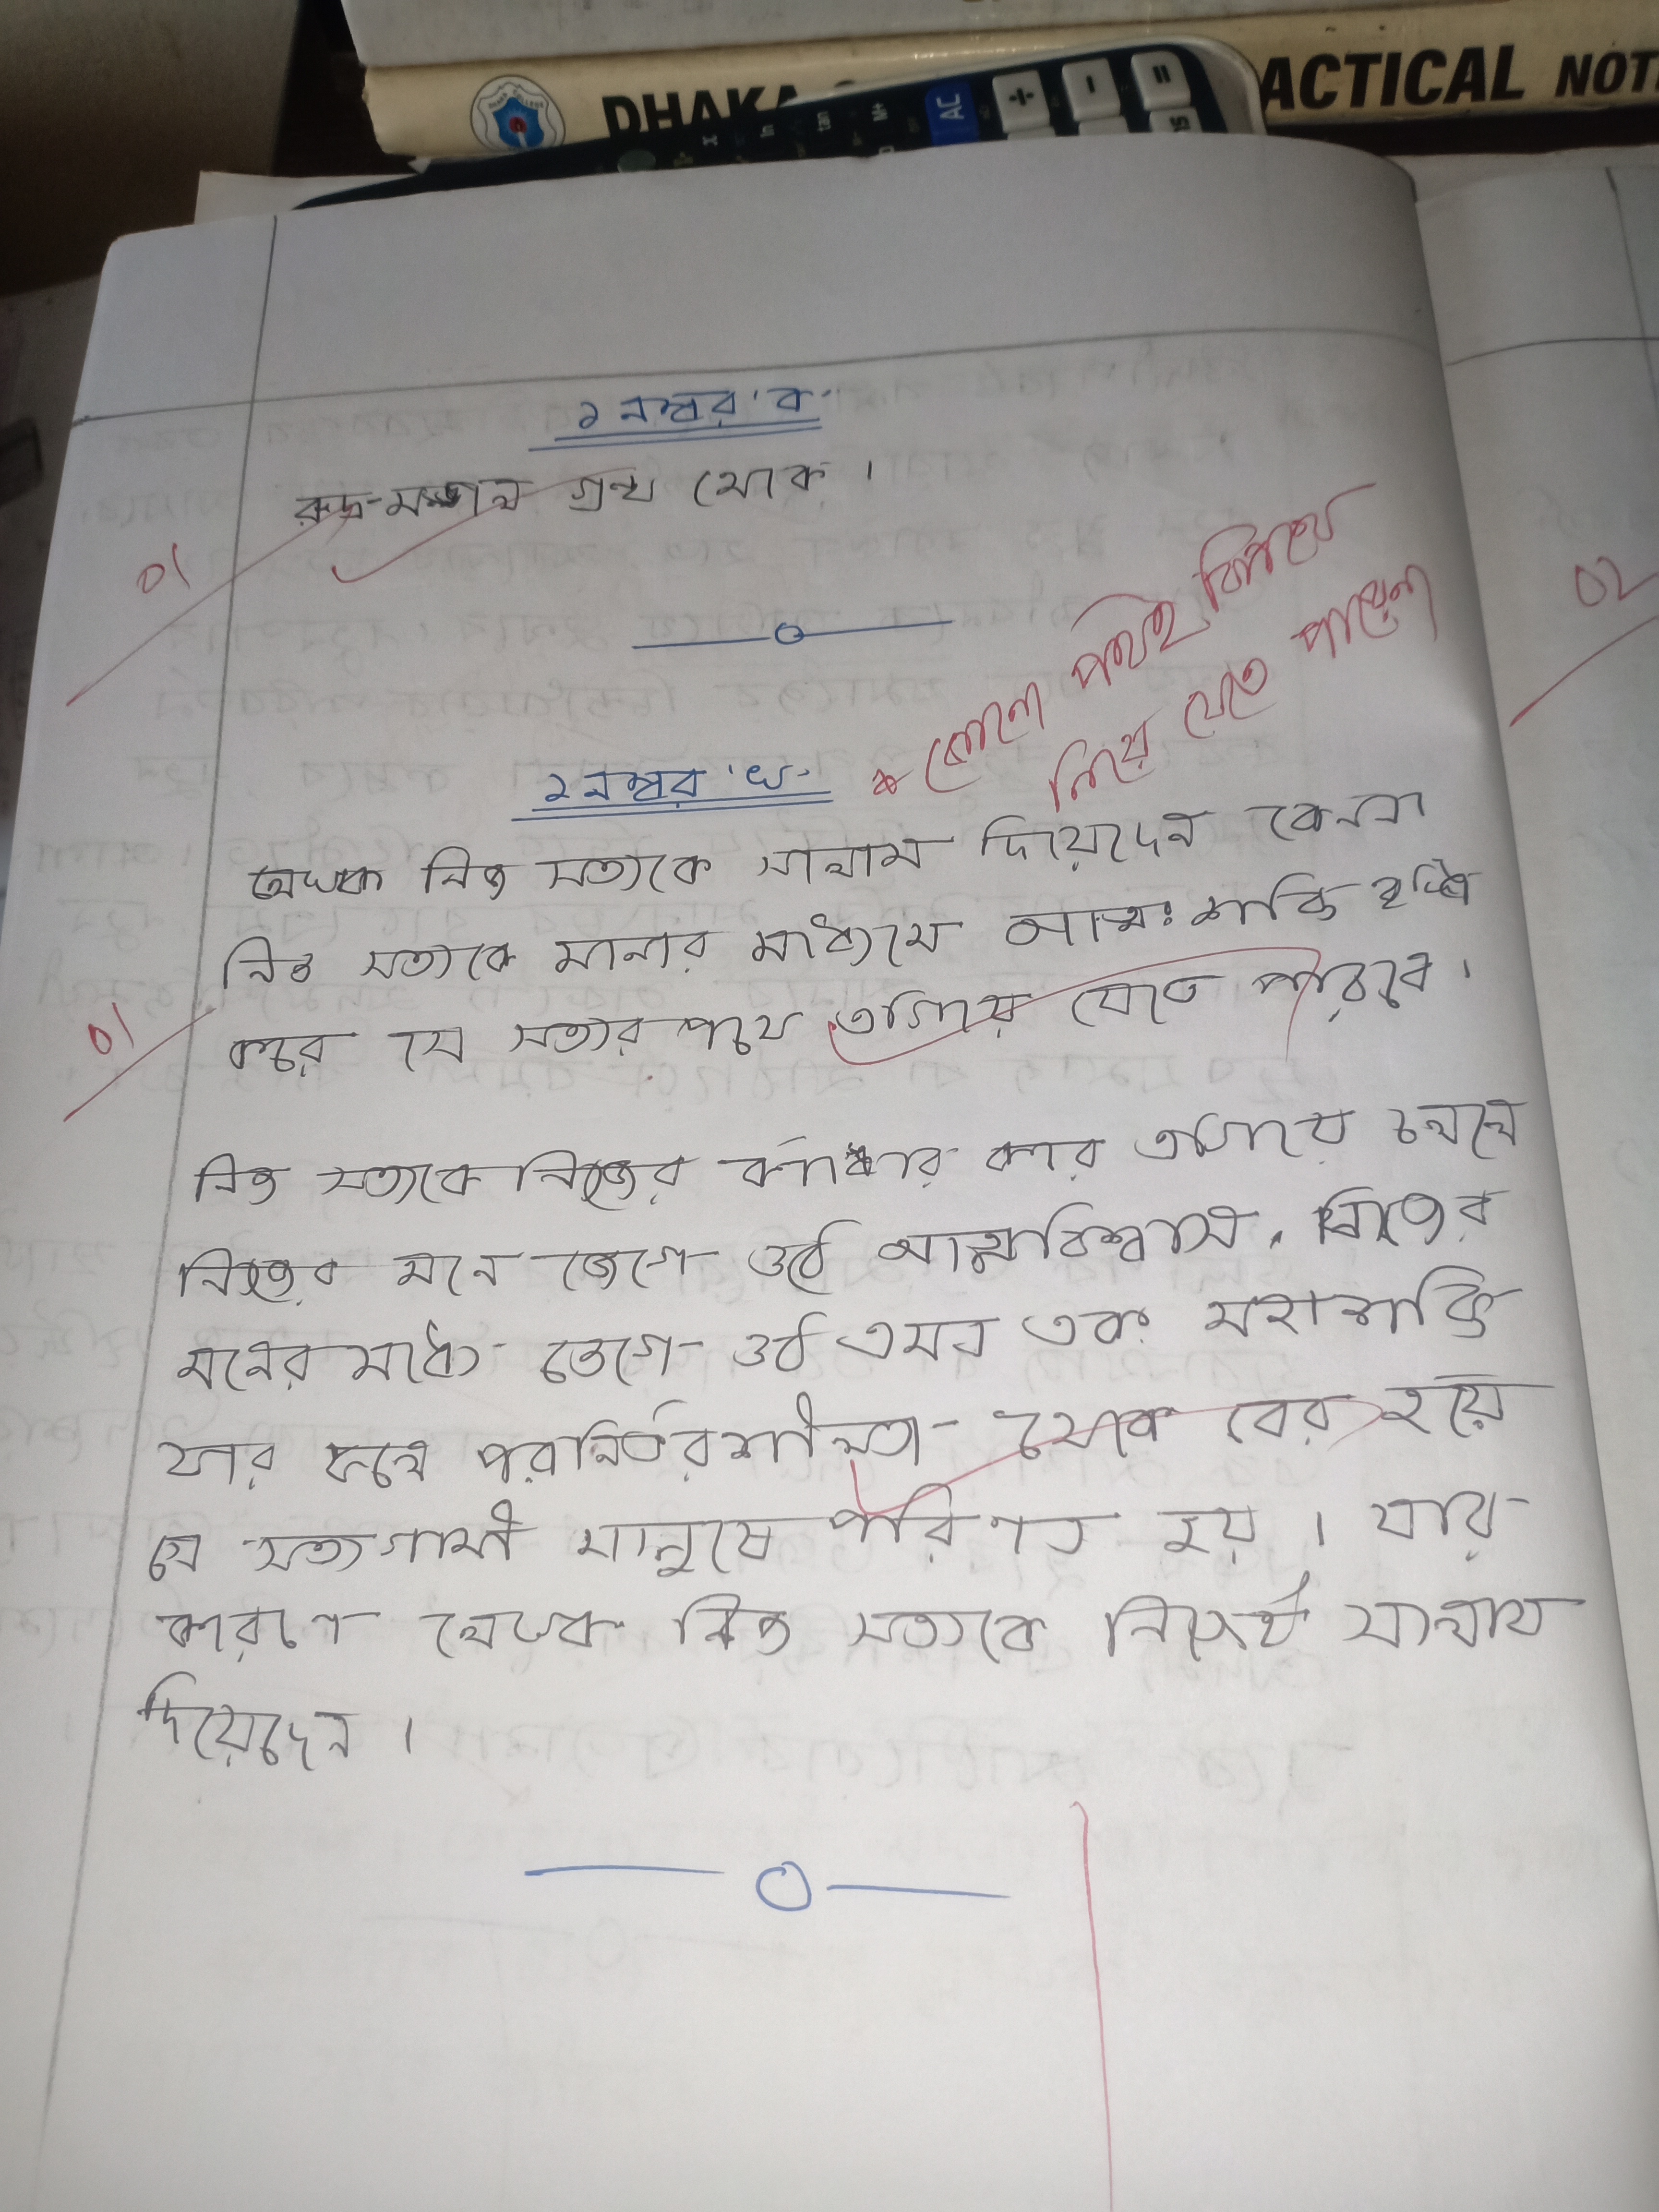 DHAKA
ACTICAL NOT
x
ln
tan
M+
AC
÷
−
=
১ নম্বর 'ক'
রুদ্র-মঙ্গল গ্রন্থ থেকে ।
01
02
* কোনো পথই বিপথে
নিয়ে যেতে পারেনা
১ নম্বর 'খ'
লেখক নিজ সত্যকে সালাম দিয়েছেন কেননা
নিজ সত্যকে মানার মাধ্যমে আত্মঃশক্তি বৃদ্ধি
করে সে সত্যের পথে এগিয়ে যেতে পারবে ।
01
নিজ সত্যকে নিজের কর্ণধার করে এগিয়ে চললে
নিজের মনে জেগে ওঠে আত্মবিশ্বাস, নিজের
মনের মধ্যে জেগে ওঠে এমন এক মহাশক্তি
যার ফলে পরনির্ভরশীলতা থেকে বের হয়ে
সে সত্যগামী মানুষে পরিণত হয় । যার
কারণে লেখক নিজ সত্যকে সালাম
দিয়েছেন ।